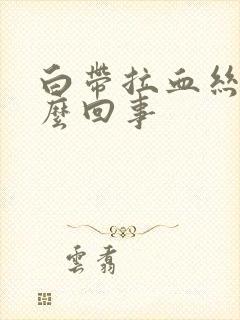 白帶拉血絲
麼回事
雲翥